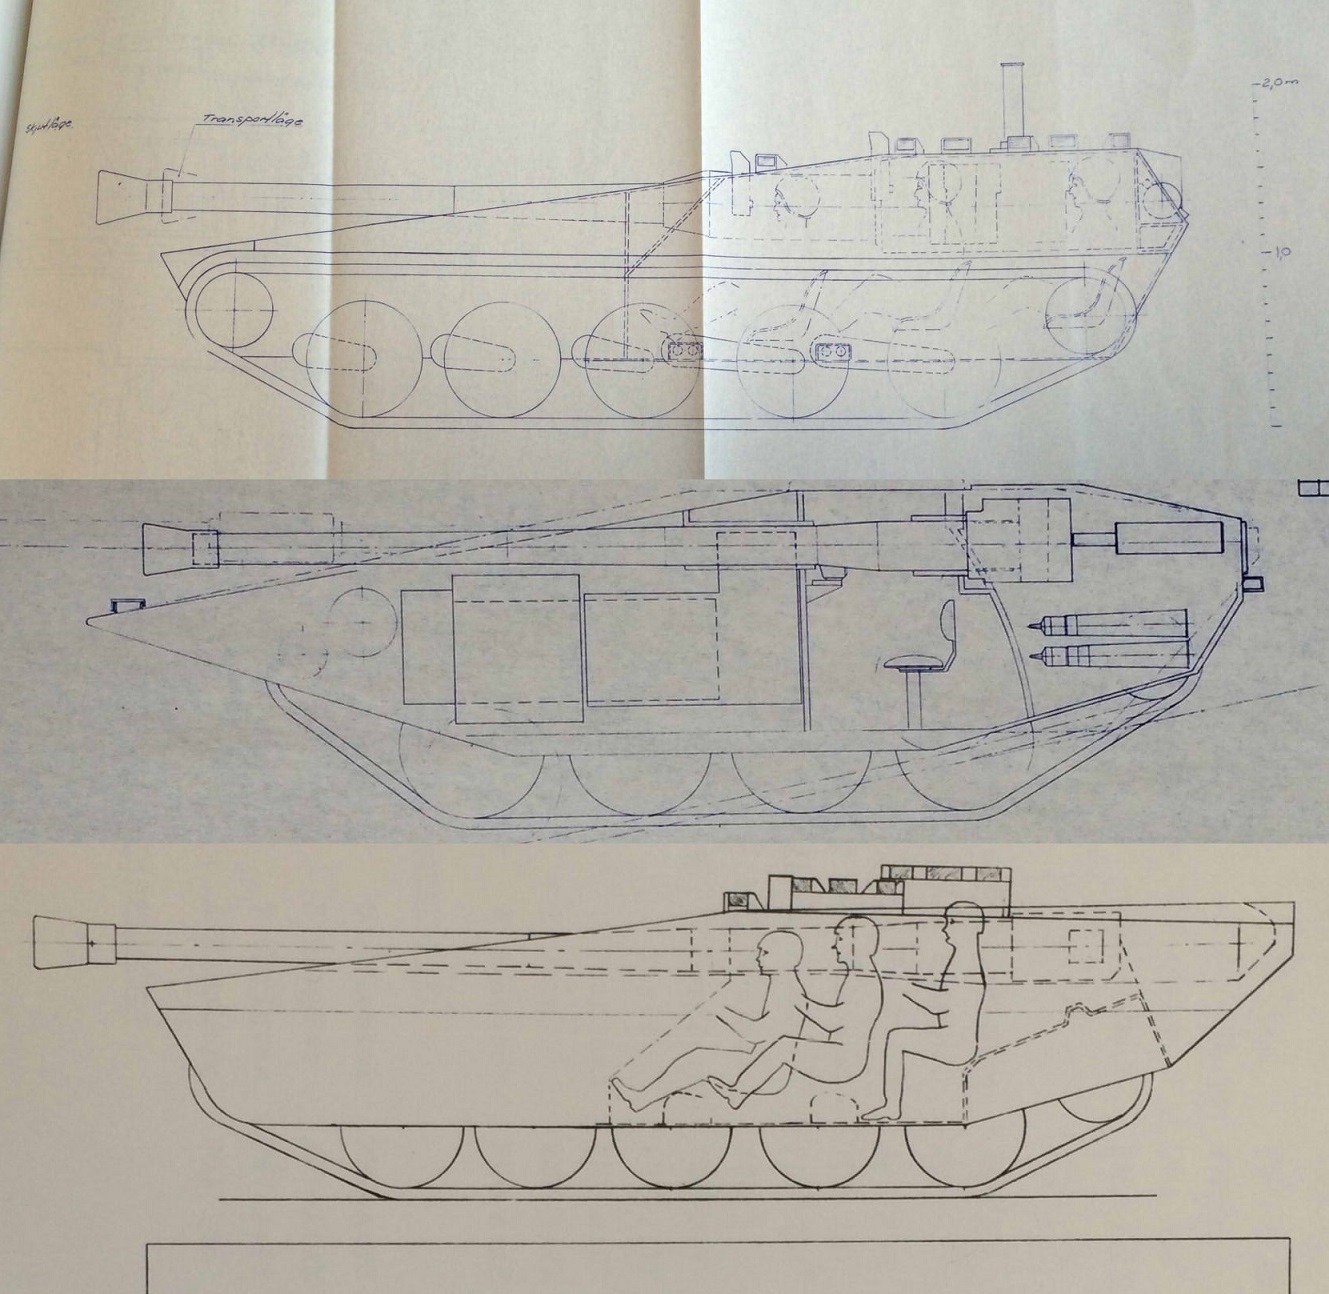 Skjutläge.
Transportläge
2,0 m
1,0